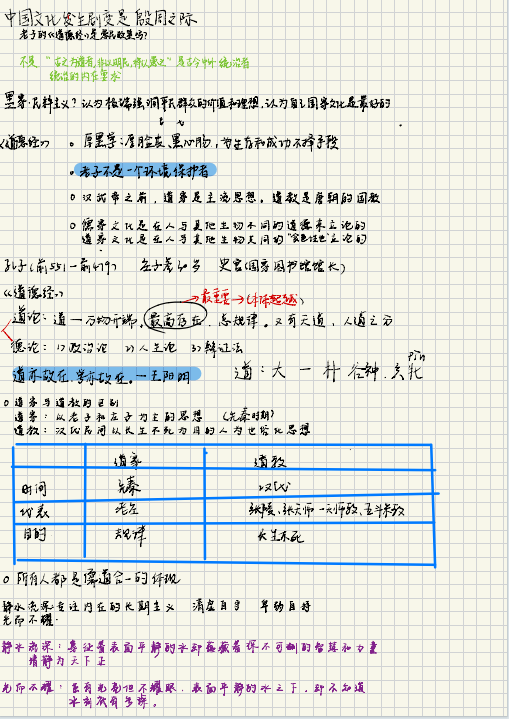 中国文化发生剧变是殷周之际
老子的《道德经》是愚民政策吗?
不是 "古之为道者,非以明民,将以愚之" 是古今中外统治者
统治的内在要求
黑寡·民粹主义? 认为极端强调平民群众的价值和理想,认为自己国家文化是最好的
《道德经》 o 厚黑学:厚脸皮、黑心肠,为生存和成功不择手段
o 老子不是一个环境保护者
o 汉武帝之前,道家是主流思想。道教是唐朝的国教
o 儒家文化是在人与其他生物不同的道德来立论的
道家文化是在人与其他生物共同的"食色性也"立论的
孔子(前551一前479) 老子 史官(国家图书馆馆长)
《道德经》 → 最重要 → (本体超越)
道论:道一万物开端。最高存在、总规律。又有天道、人道之分
德论: 1)政治论 2)人生论 3)辩证法
道亦放在,学亦放在。一王阳明 道:大 一 朴 谷神、玄牝 pìn
o 道家与道教的区别
道家:以老子和庄子为主的思想 (先秦时期)
道教:汉代民间以长生不死为目的人为世俗化思想
道家 道教
时间 先秦 汉代
代表 老庄 张陵、张天师一天师教、五斗米教
目的 规律 长生不死
o 所有人都是儒道合一的体现
静水流深 专注内在的长期主义 清虚自守 卑弱自持
光而不耀·
静水流深:象征着表面平静的水却蕴藏着深不可测的智慧和力量
清静为天下正
光而不耀:虽有光亮但不耀眼、表面平静的水之下,却不知道
水到底有多深。